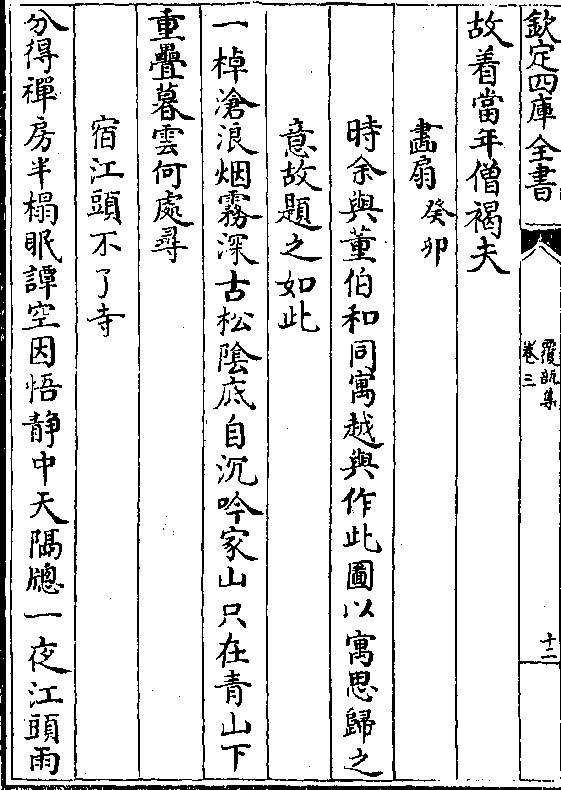 欽定四庫全書
覆瓿集
卷三
十二
故着當年僧褐夫
畵扇癸卯
時余與董伯和同寓越與作此圖以寓思歸之
意故題之如此
一棹滄浪烟霧深古松陰底自沉吟家山只在青山下
重疊暮雲何處尋
宿江頭不了寺
分得禪房半榻眠譚空因悟静中天隔牕一夜江頭雨